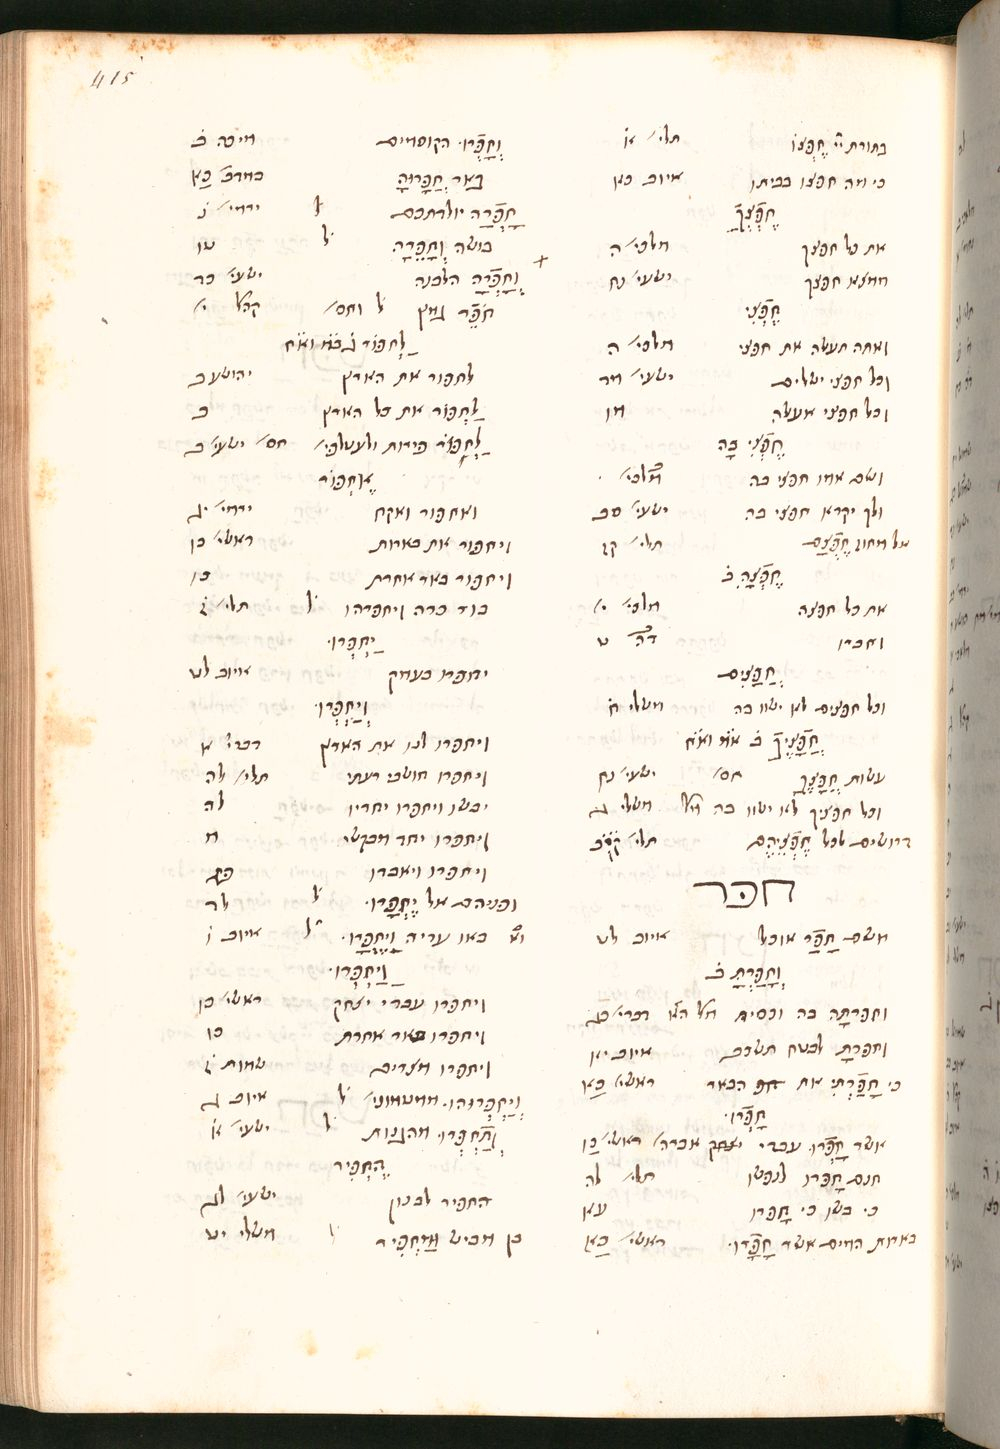 415
בתורת יי חֶפְצוֹ תלי׳ א
כי מה חפצו בביתו איוב כא
חֶפְצְךָ
את כל חפצך מלכי׳ ה
ממצא חפצך ישעי׳ נח
חֶפְצִי
ואתה תעשה את חפצי מלכי׳ ה
וכל חפצי ישלים ישעי׳ מד
וכל חפצי אעשה מו
חֶפְצִי בָהּ
ושם אמו חפצי בה מלכי׳
ולך יקרא חפצי בה ישעי׳ סב
אל מחוז חֶפְצָם תלי׳ קז
חֶפְצָהּ ב
את כל חפצה מלכי׳ י
וחברו דה ט
חֲפָצִים
וכל חפצים לא ישוו בה משלי ח
חֲפָצֶיךָ ב
עשות חֲפָצֶךָ חס׳ ישעי׳ נח
וכל חפציך לא ישוו בה משלי ג
דרושים לכל חֶפְצֵיהֶם תלי׳
חפר
משם חָפַר אוכל איוב לט
וְחָפַרְתָּ ב
וחפרתה בה וכסית דברי׳ כג
וחפרתָ לבטח תשכב איוב יא
כי חָפַרְתִּי את הבאר ראשי׳ כא
חָפְרוּ
אשר חָפְרוּ עבדי יצחק ראשי׳ כו
חנם חָפרו לנפשי תלי׳ לה
כי בשו כי חָפרו עא
בארות המים אשר חָפְרוּ ראשי׳ כא
וְחָפְרוּ הקוסמים מיכה ב
בְּאֵר חֲפָרוּהָ במדבר כא
חָפְרָה יולדתכם ל ירמי׳ נ
בושה וְחָפֵרָה ל טו
וְחָפְרָה הלבנה ישעי׳ כד
חֹפֵר גומץ ל וחס׳ קהל׳ י
לַחְפּוֹר
לחפור את הארץ יהושע ב
לַחְפּוֹר את כל הארץ ב
לַחְפּוֹר פירות ולעטלפי׳ חס׳ ישעי׳ ב
אֶחְפּוֹר
ואחפור ואקח ירמי׳ יג
ויחפור את בארות ראשי׳ כו
ויחפור באר אחרת כו
בור כרה ויחפרהו ל תלי׳ ז
יַחְפְּרוּ
יחפרו בעמק איוב לט
וְיַחְפְּרוּ
ויחפרו לנו את הארץ דברי׳ א
ויחפרו חושבי רעתי תלי׳ לה
יבשו ויחפרו יחדיו לה
ויחפרו יחד מבקשי מ
ויחפרו ויאבדו פג
ופניהם אל יֶחְפָּרוּ ל לד
באו עדיה וַיֶּחְפָּרוּ ל איוב ו
וַיַּחְפְּרוּ
ויחפרו עבדי יצחק ראשי׳ כו
ויחפרו באר אחרת כו
ויחפרו מצרים שמות ז
וַיַּחְפְּרוּהוּ ממטמוני׳ ל איוב ג
וְתַחְפְּרוּ מהגנות ל ישעי׳ א
הֶחְפִּיר
החפיר לבנון ישעי׳ לג
בן מביש וּמַחְפִּיר ל משלי יט